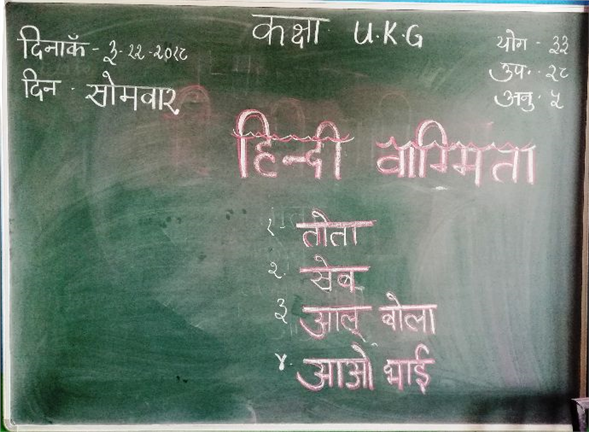 कक्षा U.K.G
दिनाकॅ - ३-१२-२०१८
दिन - सोमवार
योग - ३३
उप. - २८
अनु - ५
हिन्दी वाग्मिता
१. तोता
२. सेब
३ आलू बोला
४. आओ भाई